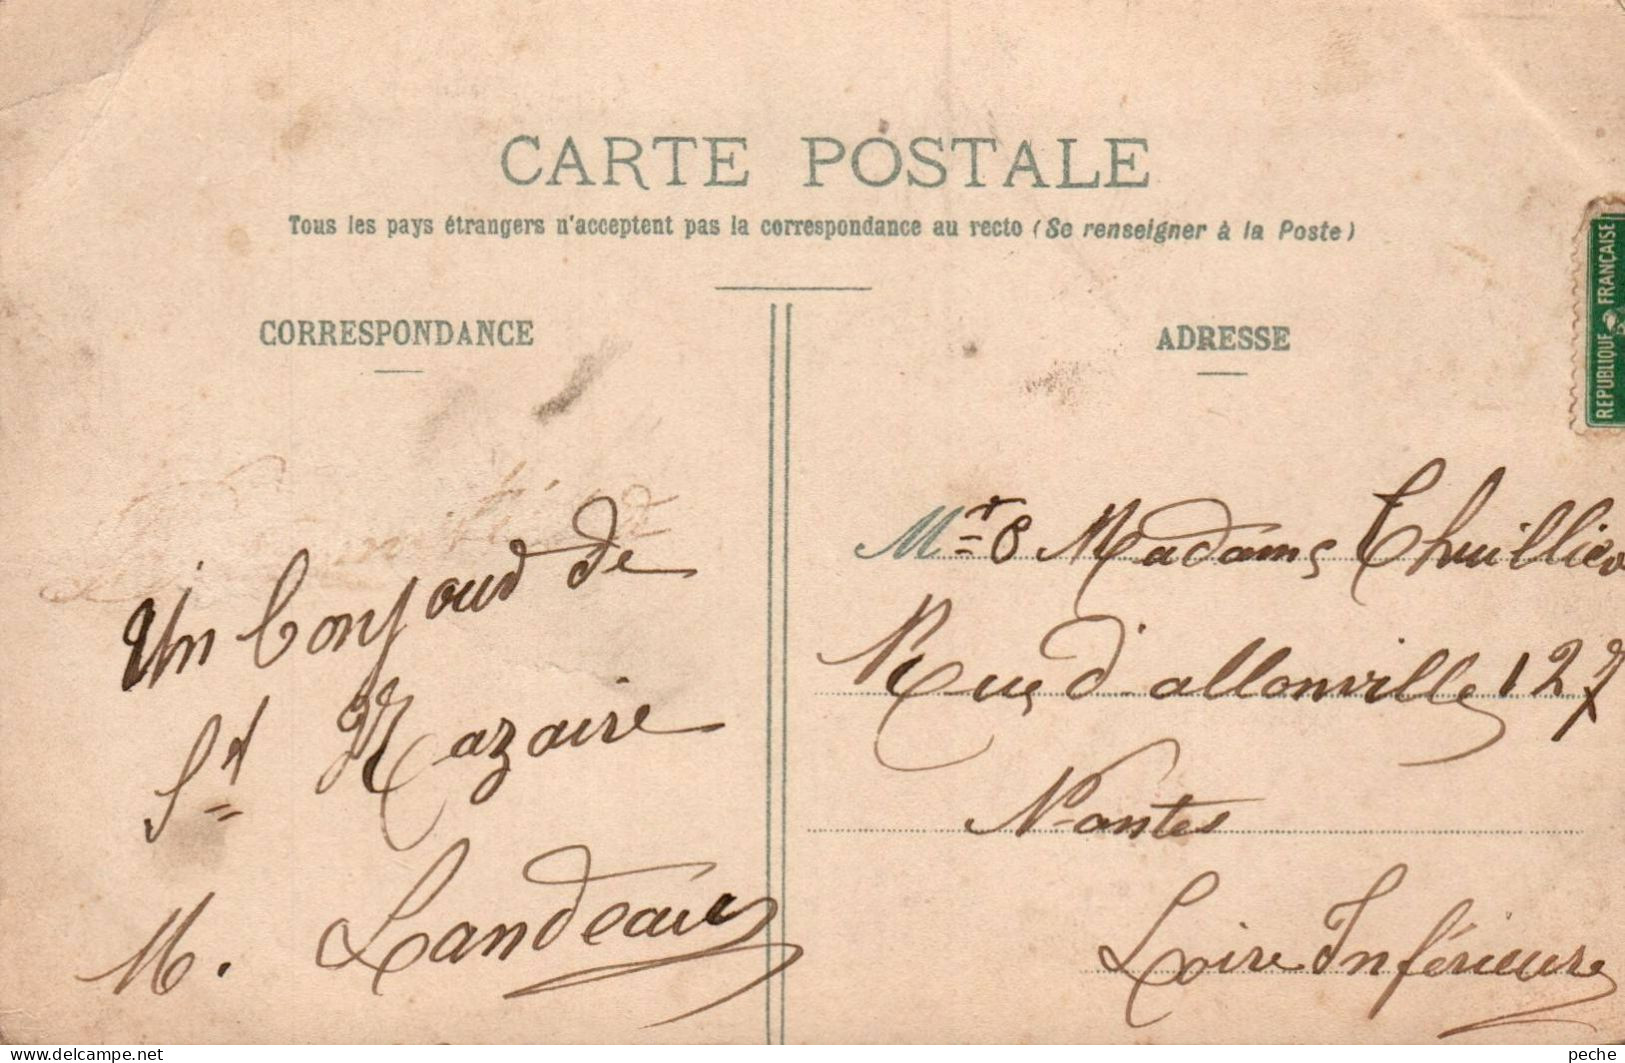 CARTE POSTALE
Tous les pays étrangers n'acceptent pas la correspondance au recto (Se renseigner à la Poste)
CORRESPONDANCE
Un bonjour de
St Nazaire
M. Landeau
ADRESSE
REPUBLIQUE FRANÇAISE
Mr & Madame Thuillier
Rue d'allonville 127
Nantes
Loire Inférieure
delcampe.net
peche